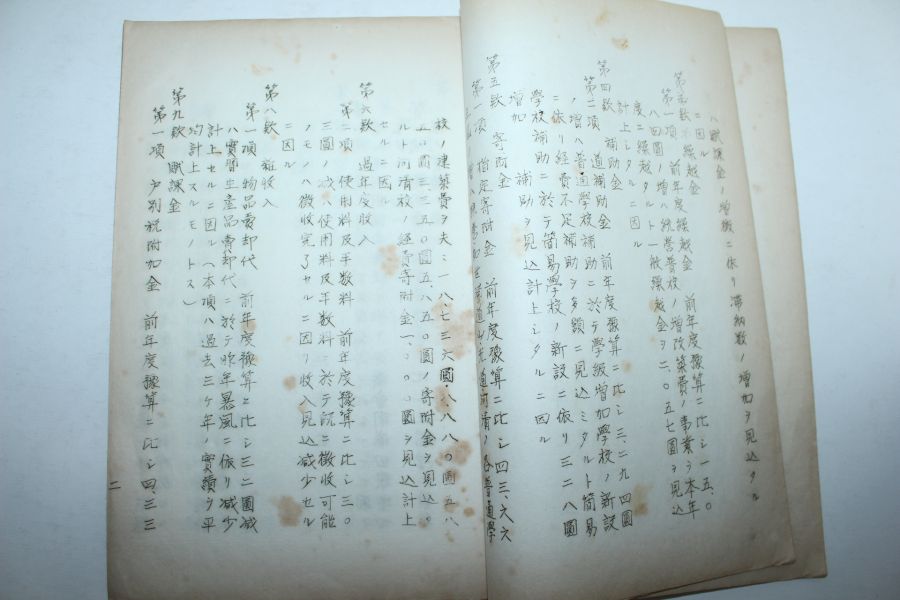 ハ賦課金ノ増徴ニ依リ滞納数ノ増加ヲ見込タル
ニ因ル
繰越金
第一項 前年度繰越金 前年度豫算ニ比シ一五、〇
八四圓ノ増ハ 普校ノ増改築費ノ事業ヲ本年
度ニ繰越タルト一般繰越金ヲ二、〇五七圓ヲ見込
計上シタルニ因ル
第四欵 補助金
第二項 道補助金 前年度豫算ニ比シ三、二九四圓
ノ増ハ普通學校補助ニ於テ學級増加學校ノ新設
ニ依リ經費不足補助ヲ多額ニ見込ミタルト簡易
學校補助ニ於テ簡易學校ノ新設ニ依リ三二八圓
増加 補助ヲ見込計上シタルニ因ル
第五欵 寄附金
第一項 指定寄附金 前年度豫算ニ比シ四三、六六
普通學
校ノ建築費ヲ夫々一八七三六圓、八八八〇圓五八
五〇圓三、三五〇圓五、八五〇圓ノ寄附金ヲ見込。
ルト河清校ノ經 寄附金一、〇〇〇圓ヲ見込計上
セルニ因ル
第六欵 過年度收入
第二項 使用料及手数料 前年度豫算ニ比シ三〇
三圓ノ減ハ使用料及手数料ニ於テ既ニ徴收可能
ノモノハ徴收完了セルニ因リ收入見込減少セル
ニ因ル
第八欵 雜收入
第一項 物品賣却代 前年度豫算ニ比シ三二圓減
ハ實習生産品賣却代ニ於テ昨年暴風ニ依リ減少
計上セルニ因ル(本項ハ過去三ケ年ノ實績ヲ平
均計上スルモノトス)
第九欵 賦課金
第一項 戸別税附加金 前年度豫算ニ比シ四、三三
二